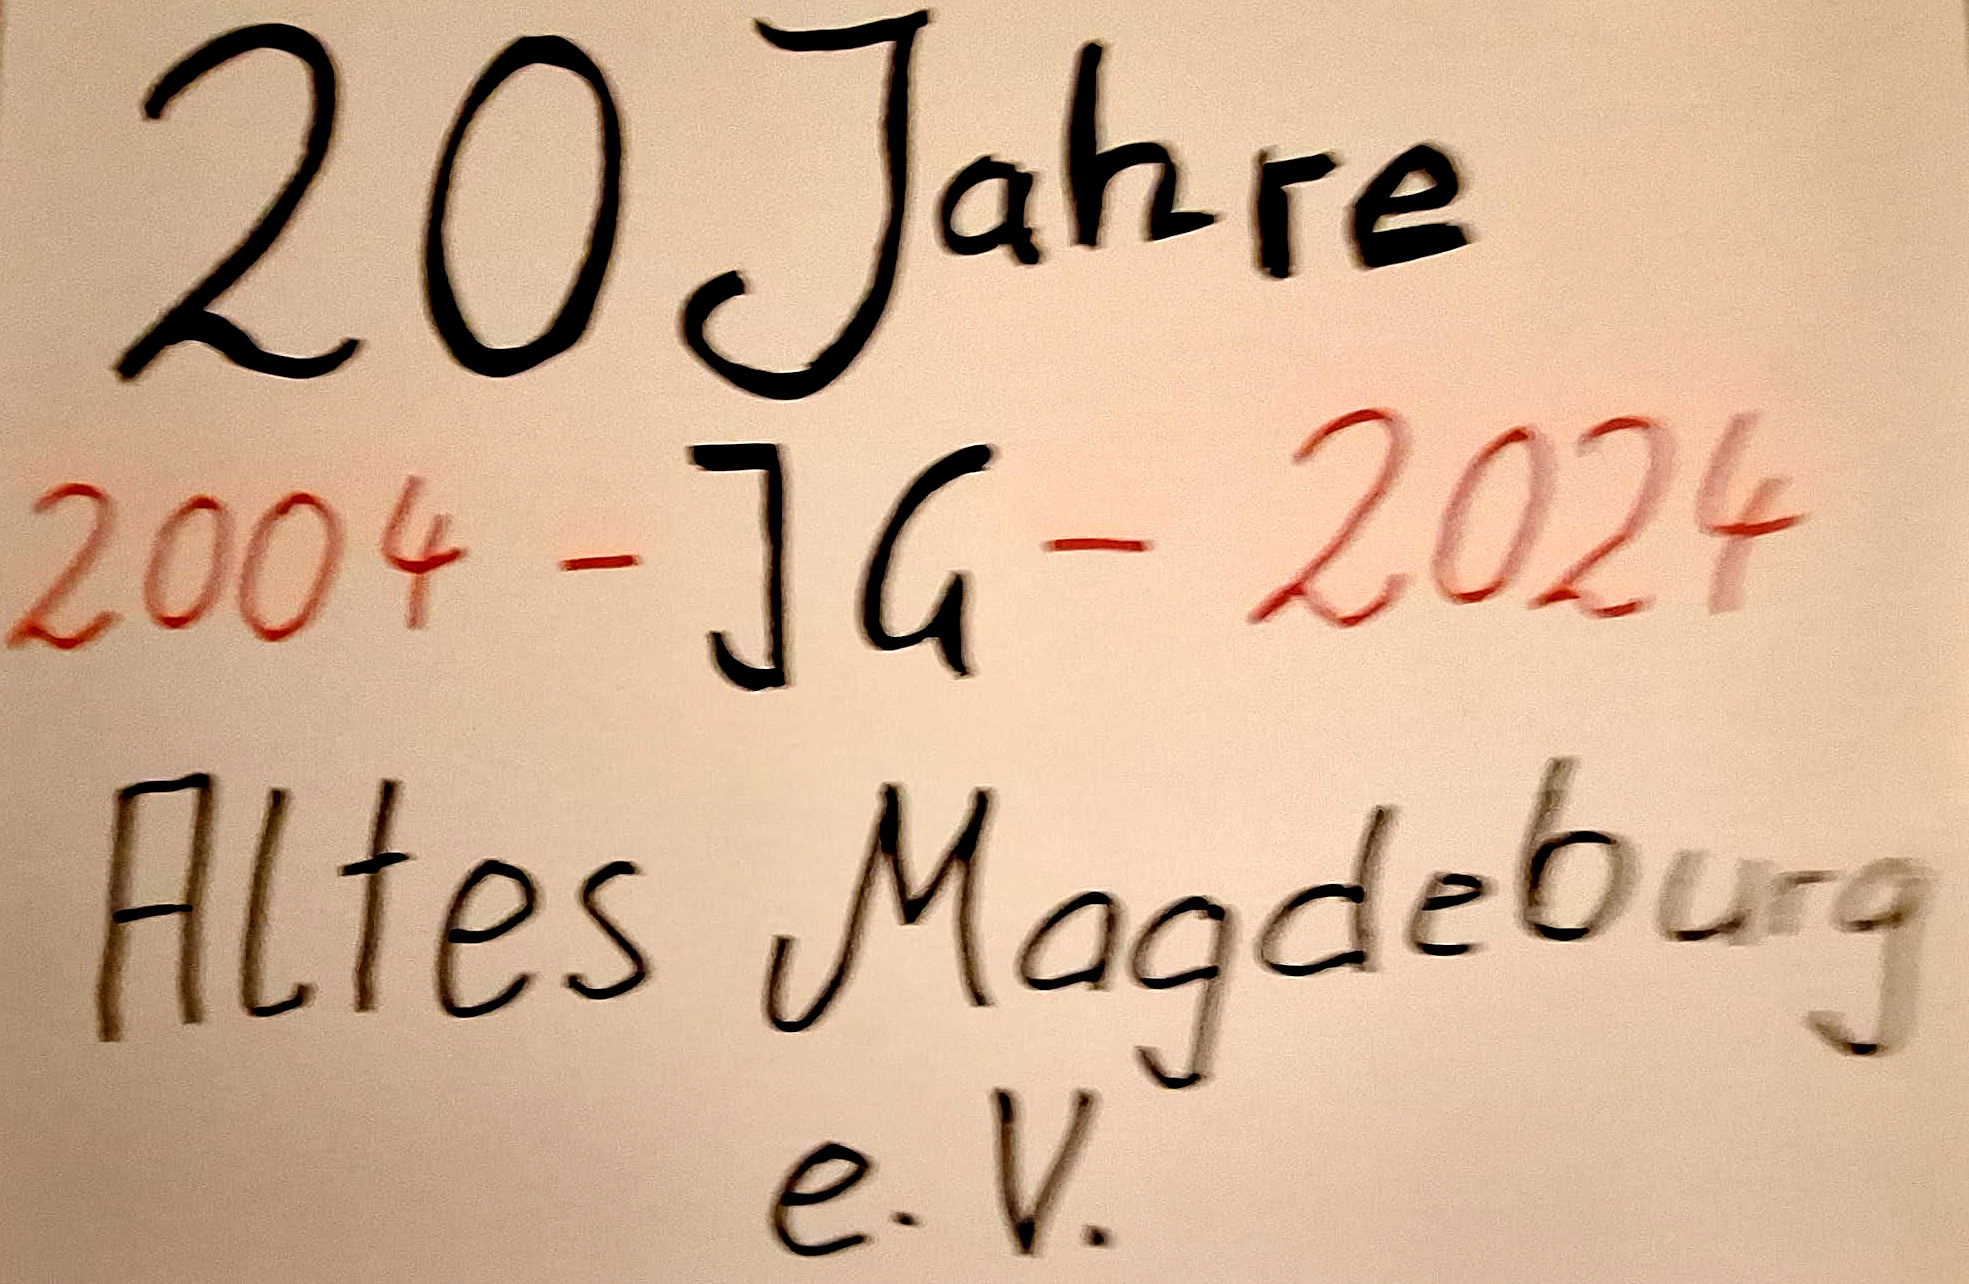 20 Jahre
2004 - IG - 2024
Altes Magdeburg
e.V.